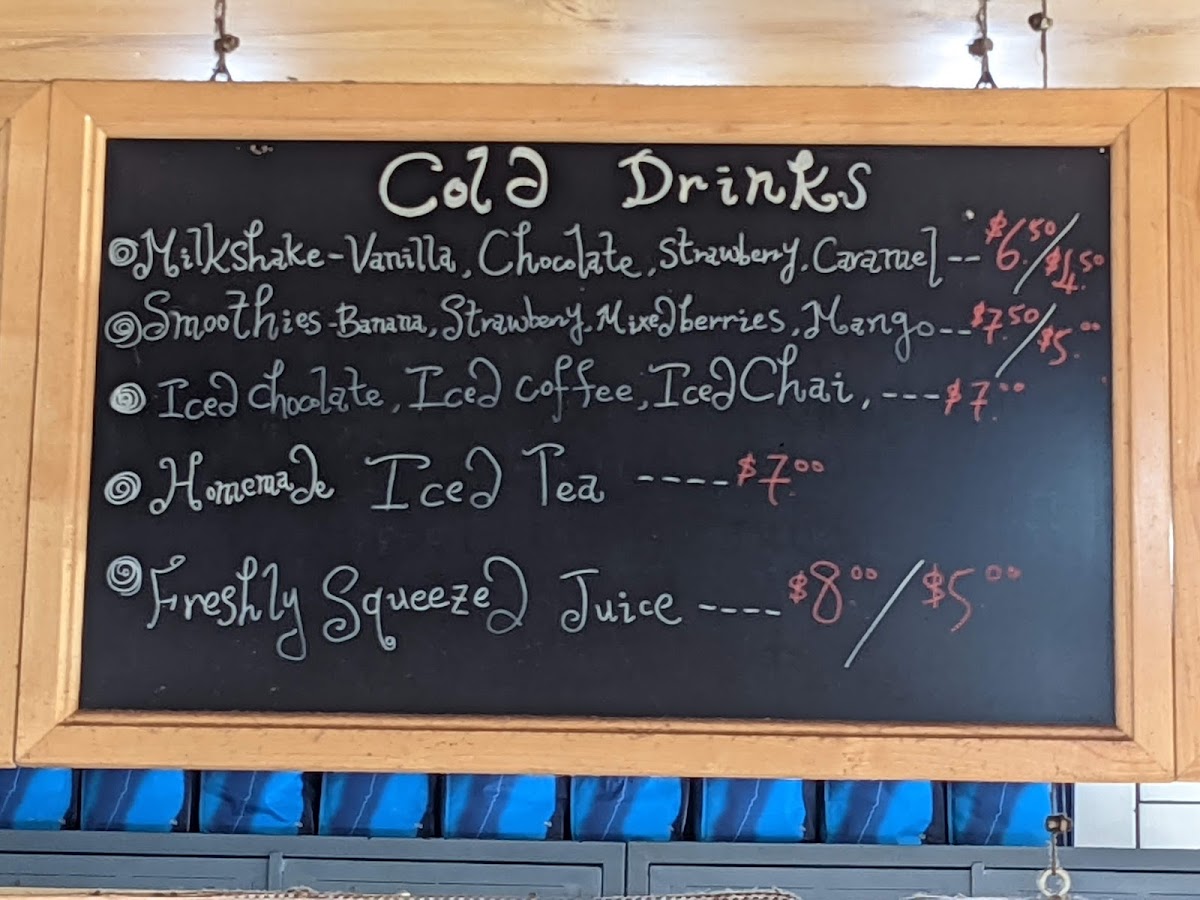 Cold Drinks
Milkshake - Vanilla, Chocolate, Strawberry, Caramel -- $6.50/$4.50
Smoothies - Banana, Strawberry, Mixed berries, Mango -- $7.50/$5.00
Iced chocolate, Iced coffee, Iced Chai, --- $7.00
Homemade Iced Tea ---- $7.00
Freshly Squeezed Juice ---- $8.00/$5.00